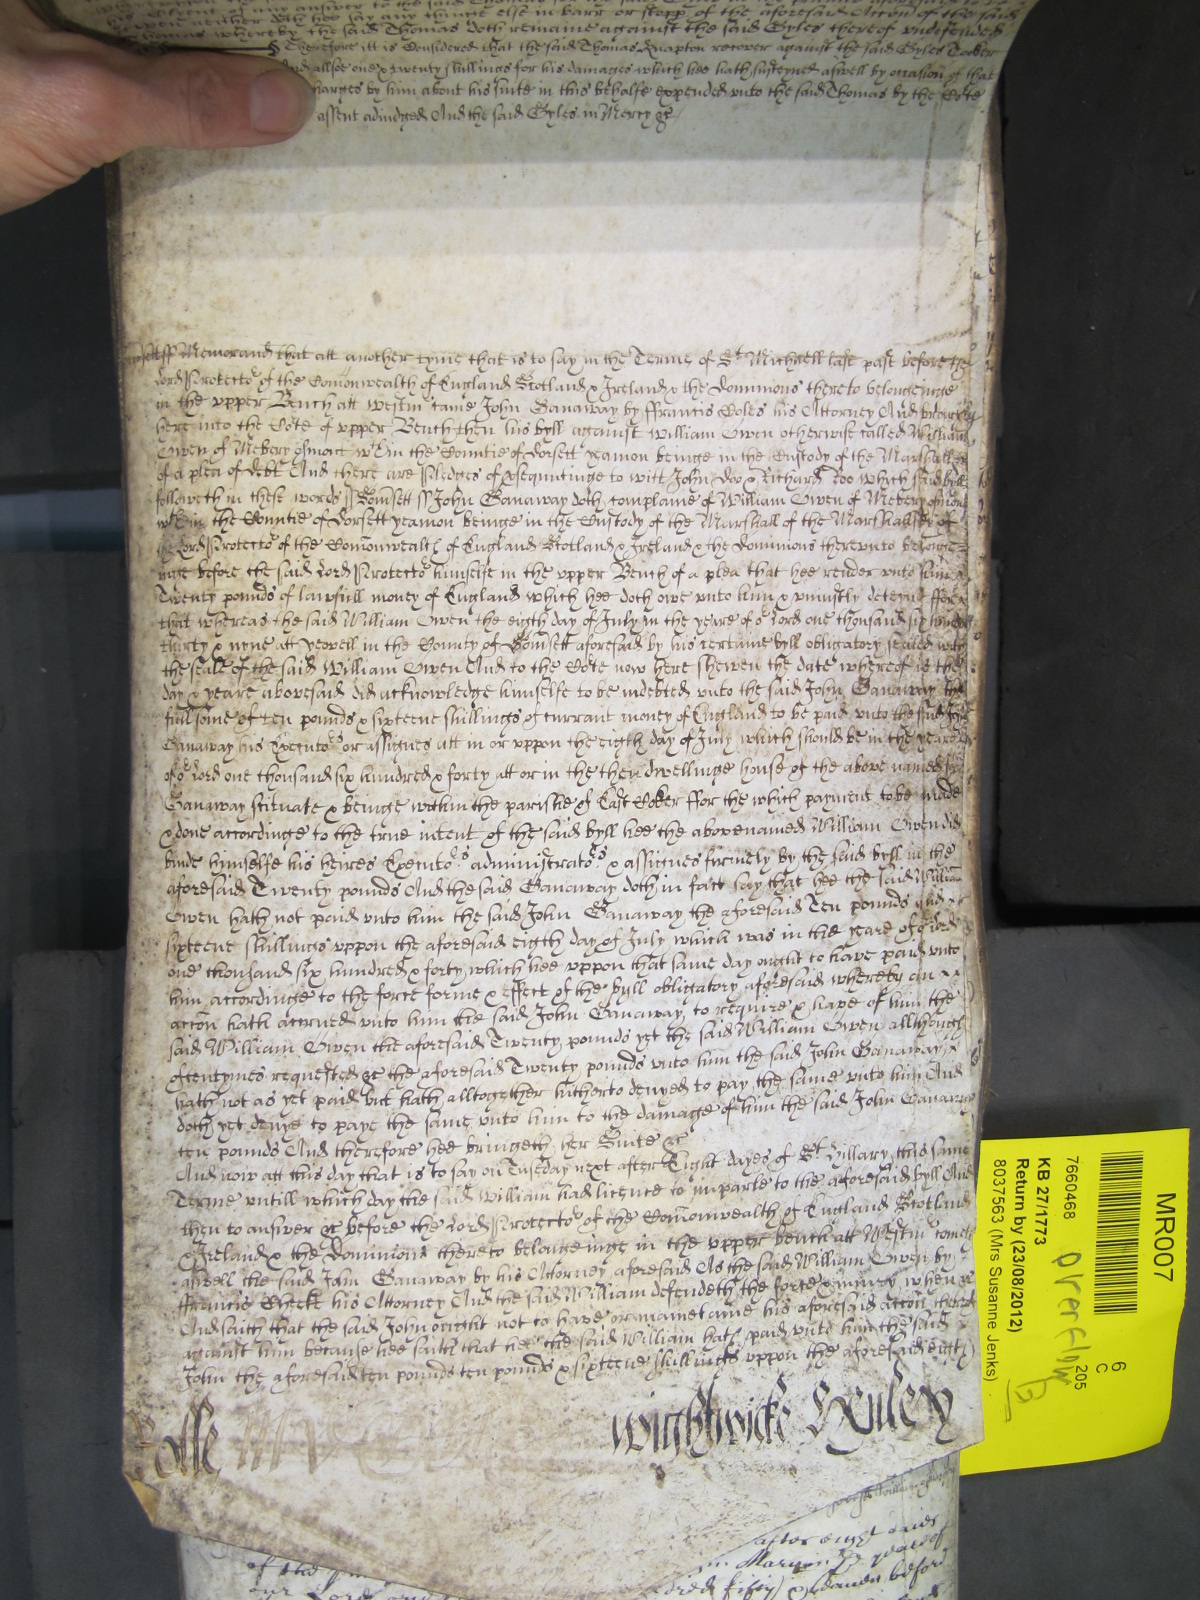 any answer to the said Thomas
neither doth hee say any thinge else in barr or stopp of the aforesaid Accon of the said
Thomas whereby the said Thomas doth remaine against the said Gyles thereof undefended
§ Therefore itt is Considered that the said Thomas Knapton recover against the said Gyles
And allsoe one x twenty shillings for his damages which hee hath susteyned aswell by occasion of that
Charges by him about his suite in this behalfe expended unto the said Thomas by the Cote
assent adiudged And the said Gyles in Mercy &c
Memorand that att another tyme that is to say in the Terme of St Michaell last past before the
Lord Protector of the Comonwealth of England Scotland x Ireland x the Dominions thereto belonginge
in the upper Bench att Westm came John Ganaway by ffrancis Coles his Attorney And brought
here into the Cote of upper Bench then his byll against William Owen otherwise called William
Owen of Mebery osmort wthin the Countie of Dorsett yeamon beinge in the Custody of the Marshall &c
of a plea of debt And there are Pledges of psequutinge to witt John Doo x Richard Roo which said byll
followeth in these words ss Somsett ss John Ganaway doth complaine of William Owen of Mebery osmort
wthin the Countie of Dorsett yeamon beinge in the Custody of the Marshall of the Marshallsey of
the Lord Protector of the Comonwealth of England Scotland x Ireland x the Dominions thereunto belonge=
inge before the said Lord Protector himselfe in the upper Bench of a plea that hee render unto him
Twenty pounds of lawfull money of England which hee doth owe unto him x uniustly deteyne ffor
that whereas the said William Owen the eigth day of July in the yeare of or Lord one thousand six hundred
thirty x nyne att Yeovell in the County of Somsett aforesaid by his certaine byll obligatory sealed with
the seale of the said William Owen And to the Cote now here shewen the date whereof is the
day x yeare abovesaid did acknowledge himselfe to be indebted unto the said John Ganaway the
full some of ten pounds x sixteene shillings of currant money of England to be paid unto the said John
Ganaway his Executors or assignes att in or uppon the eigth day of July which should be in the yeare
of or Lord one thousand six hundred x forty att or in the then dwellinge house of the above named John
Ganaway scituate x beinge within the parishe of East Coker ffor the which payment to be made
x done accordinge to the true intent of the said byll hee the abovenamed William Owen did
binde himselfe his heires Executors administrators x assignes firmely by the said byll in the
aforesaid Twenty pounds And the said Ganaway doth in fact say that hee the said William
Owen hath not paid unto him the said John Ganaway the aforesaid Ten pounds and
sixteene shillings uppon the aforesaid eigth day of July which was in the yeare of or Lord
one thousand six hundred x forty which hee uppon that same day ought to have paid unto
him accordinge to the force forme x effect of the byll obligatory aforesaid whereby an
accon hath accrued unto him the said John Ganaway to require x have of him the
said William Owen the aforesaid Twenty pounds yet the said William Owen allthough
oftentymes requested &c the aforesaid Twenty pounds unto him the said John Ganaway
hath not as yet paid but hath alltogether hitherto denyed to pay the same unto him And
doth yet denye to paye the same unto him to the damage of him the said John Ganaway
ten pounds And therefore hee bringeth her Suite &c
And now att this day that is to say on Tuseday next after Eight dayes of St Hillary this same
Terme untill which day the said William had licence to imparle to the aforesaid byll And
then to answer &c before the Lord Protector of the Comonwealth of England Scotland
x Ireland x the Dominions thereto belongeinge in the upper bench att Westm cometh
aswell the said John Ganaway by his Attorney aforesaid As the said William Owen by
ffrancis Cheeke his Attorney And the said William defendeth the force x iniury when &c
And saith that the said John ought not to have or mainetaine his aforesaid accon thereof
against him because hee saith that hee the said William hath paid unto him the said
John the aforesaid ten pounds ten pounds x sixteene shillings uppon the aforesaid eigth
Wightwicke
after eight daies
MR007
6
C
205
7660468
KB 27/1773
Return by (23/08/2012)
8037563 (Mrs Susanne Jenks)
overflow